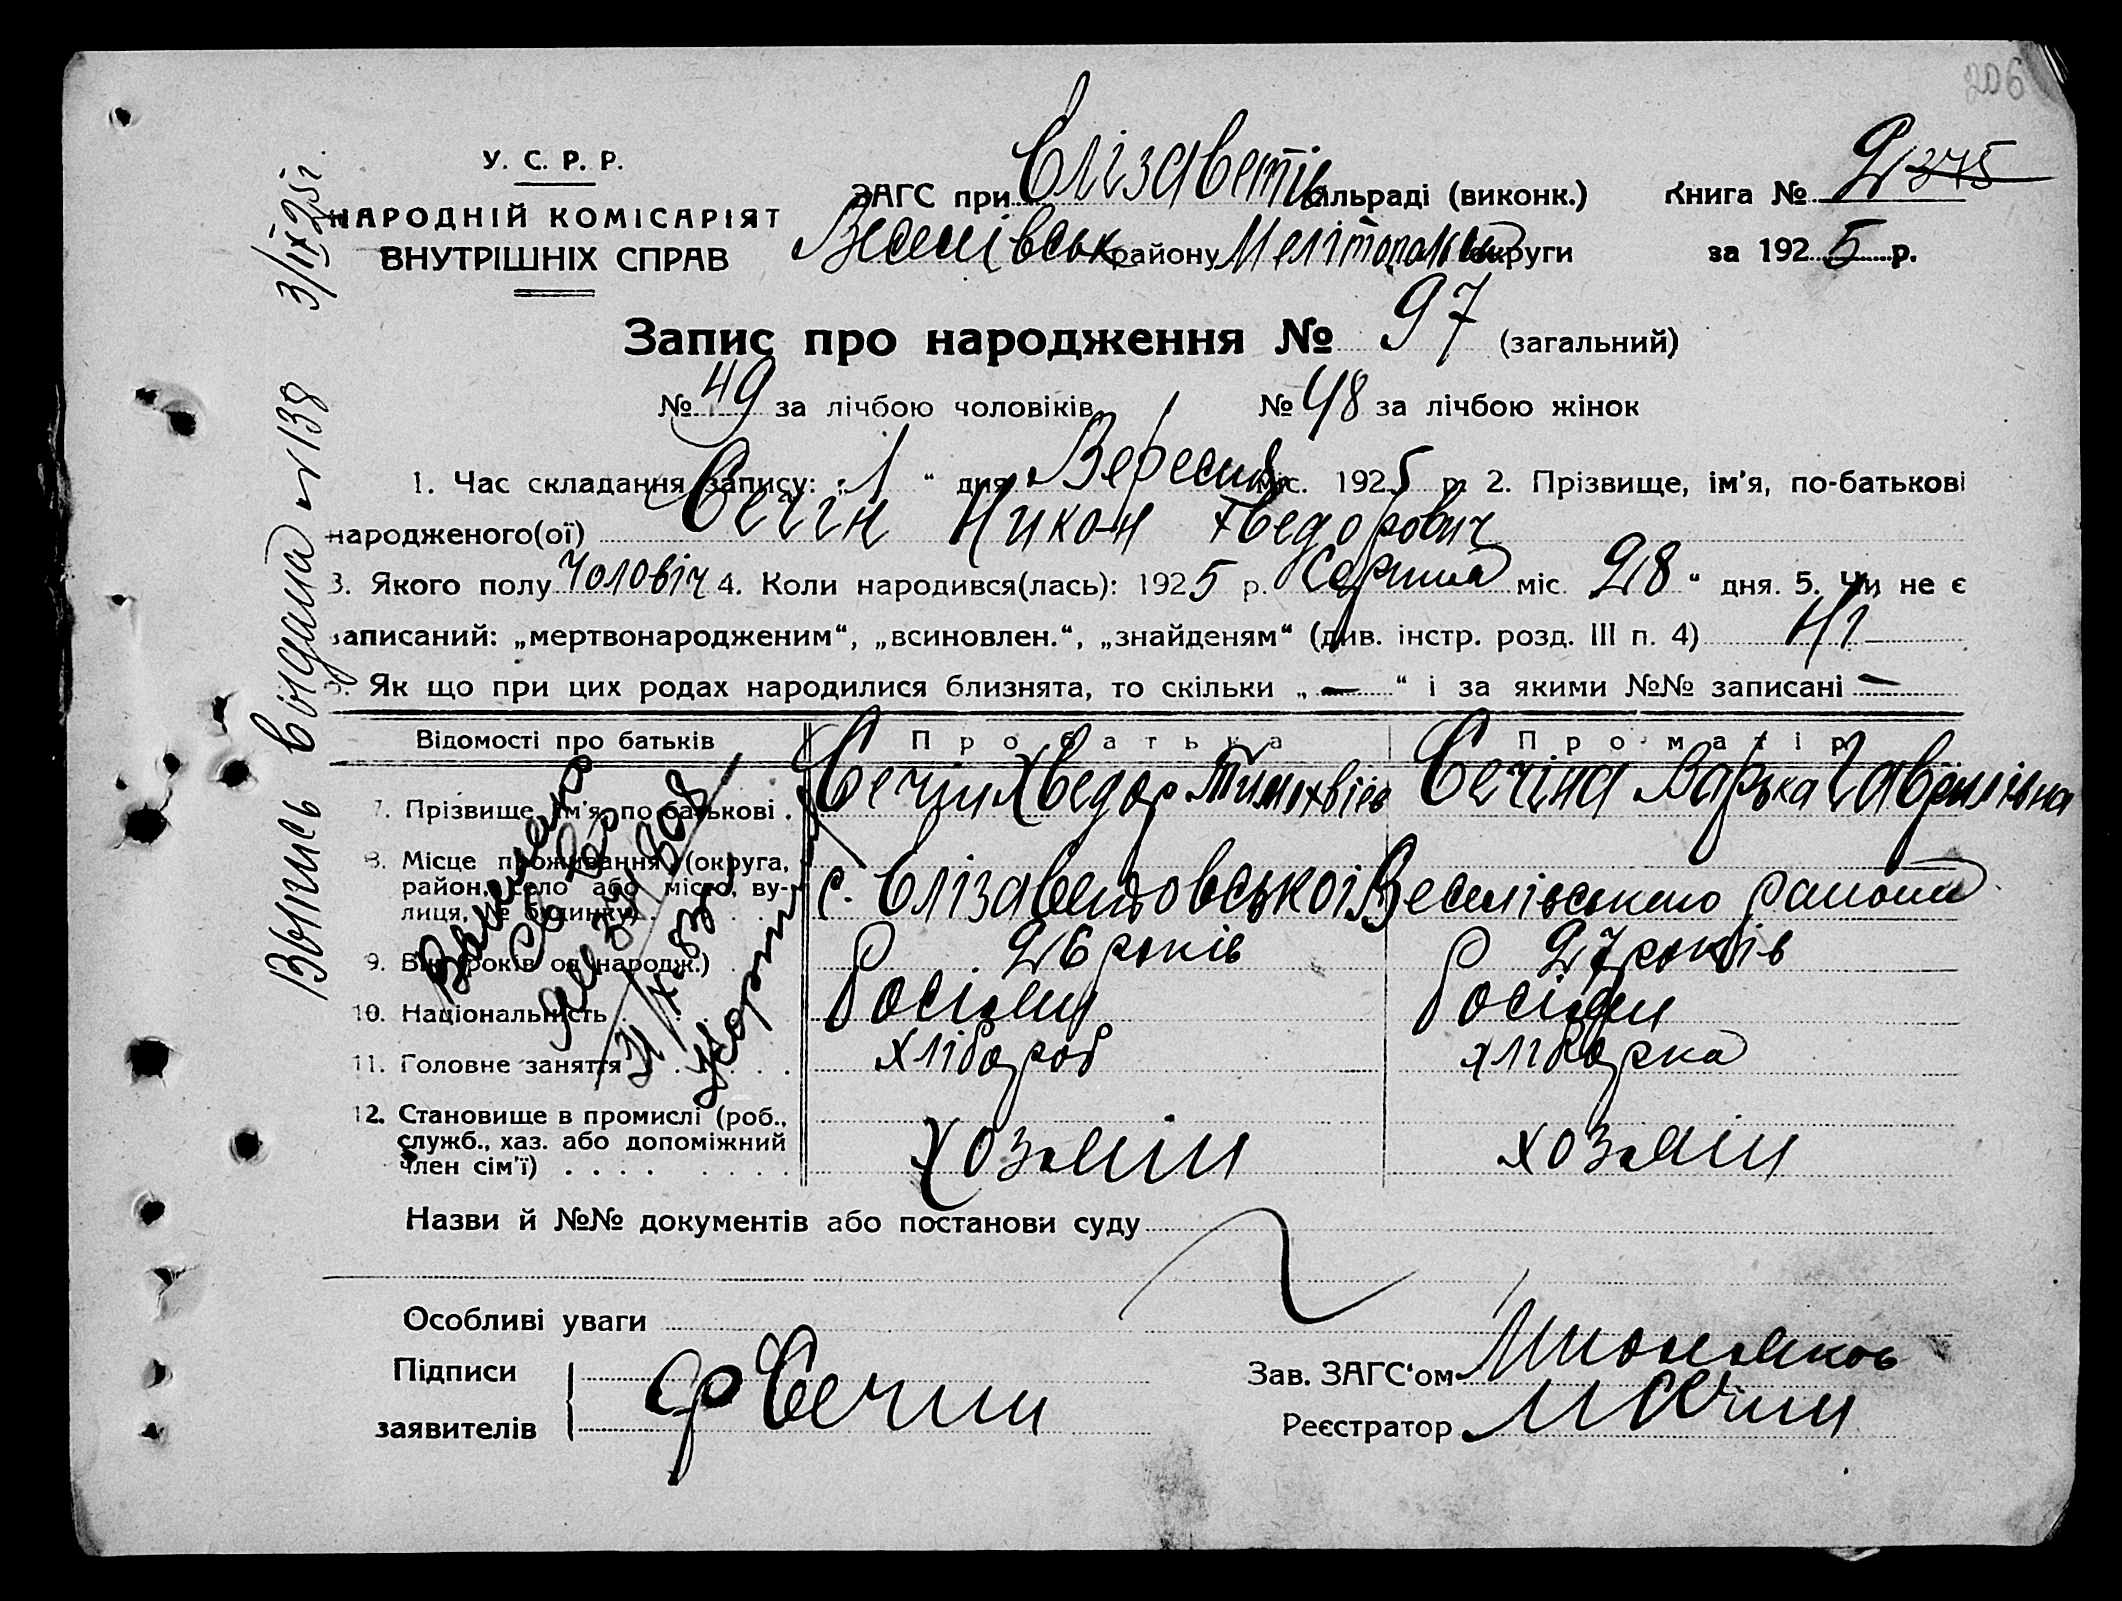 206
У. С. Р. Р.
НАРОДНІЙ КОМІСАРІЯТ
ВНУТРІШНІХ СПРАВ
ЗАГС при Єлізаветів сільраді (виконк.)
Веселівськ району Мелітопольськ округи
Книга № 2 375
за 1925 р.
Запис про народження № 97 (загальний)
№ 49 за лічбою чоловіків
№ 48 за лічбою жінок
1. Час складання запису: „1“ дня Вересня міс. 1925 р. 2. Прізвище, ім'я, по-батькові
народженого(ої) Сечін Никон Хведорович
3. Якого полу Чоловіч 4. Коли народився(лась): 1925 р. Серпня міс. 28 “ дня. 5. Чи не є
записаний: „мертвонародженим“, „всиновлен.“, „знайденям“ (див. інстр. розд. III п. 4) Ні
6. Як що при цих родах народилися близнята, то скільки „—“ і за якими №№ записані —
Відомості про батьків
Про батька
Про матір
7. Прізвище, ім'я, по батькові .
Сечин Хведор Тимохвієв
Сечіна Варька Гаврилівна
8. Місце проживання (округа,
район, село або місто, ву-
лиця, № будинку) .
с. Єлізаветовської Веселівського району
9. Вік (років од народж.)
26 років
27 років
10. Національність
Росіяни
Росіяни
11. Головне заняття
хлібороб
хліборка
12. Становище в промислі (роб.,
служб., хаз. або допоміжний
член сім'ї) . . . .
хозяїн
хозяїн
Назви й №№ документів або постанови суду
Особливі уваги
Підписи
заявителів
Ф Сечин
Зав. ЗАГС'ом
Реєстратор
М Сечин
Выпись выдана № 138 3/IX 25 г.